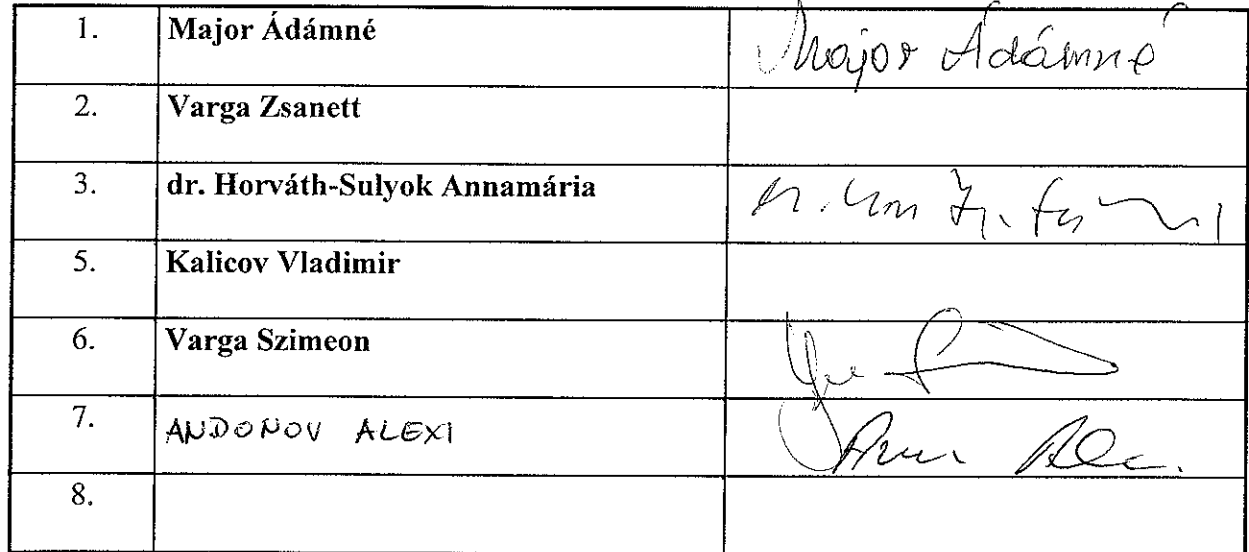 1. Major Ádámné Major Ádámné
2. Varga Zsanett
3. dr. Horváth-Sulyok Annamária
5. Kalicov Vladimir
6. Varga Szimeon
7. ANDONOV ALEXI
8.